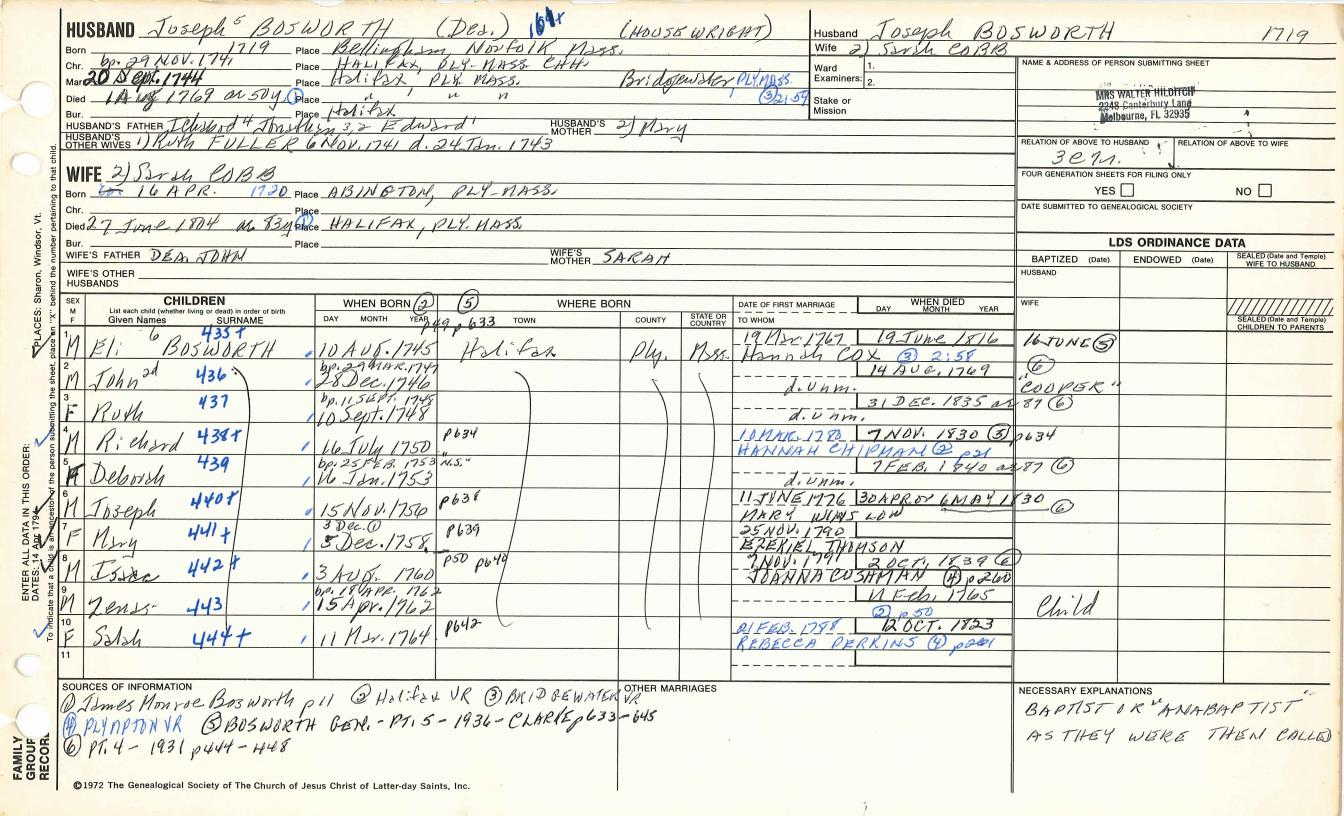 HUSBAND Joseph⁵ BOSWORTH (Dea.) 164+ (HOUSE WRIGHT)
Born 1719 Place Bellingham, Norfolk Mass.
Chr. bp. 29 NOV. 1741 Place HALIFAX, PLY-MASS CHH.
Mar. 20 Sept. 1744 Place Halifax, PLY. MASS. Bridgewater PLY-MASS.
Died 1 Aug 1769 ae 50y. ① Place " " " ③ 2:59
Bur. Place Halifax
HUSBAND'S FATHER Ichabod⁴ Jonathan³,² Edward¹ HUSBAND'S MOTHER 2) Mary
HUSBAND'S OTHER WIVES 1) Ruth FULLER 6 NOV. 1741 d. 24 Jan. 1743
Husband Joseph BOSWORTH 1719
Wife 2) Sarah COBB
Ward Examiners: 1.
2.
Stake or Mission
NAME & ADDRESS OF PERSON SUBMITTING SHEET
MRS WALTER HILDITCH
2248 Canterbury Lane
Melbourne, FL 32935
RELATION OF ABOVE TO HUSBAND RELATION OF ABOVE TO WIFE
FOUR GENERATION SHEETS FOR FILING ONLY
YES NO
DATE SUBMITTED TO GENEALOGICAL SOCIETY
WIFE 2) Sarah COBB
Born 16 APR. 1720 Place ABINGTON, PLY-MASS.
Chr. Place
Died 27 June 1804 ae 83y Place HALIFAX, PLY-MASS.
Bur. Place
WIFE'S FATHER DEA. JOHN WIFE'S MOTHER SARAH
WIFE'S OTHER HUSBANDS
LDS ORDINANCE DATA
BAPTIZED (Date) ENDOWED (Date) SEALED (Date and Temple) WIFE TO HUSBAND
HUSBAND
WIFE
SEALED (Date and Temple) CHILDREN TO PARENTS
SEX M F CHILDREN List each child (whether living or dead) in order of birth Given Names SURNAME
WHEN BORN ② ⑤ DAY MONTH YEAR
WHERE BORN TOWN COUNTY STATE OR COUNTRY
DATE OF FIRST MARRIAGE TO WHOM
WHEN DIED DAY MONTH YEAR
p49 p633
1 M Eli⁶ BOSWORTH 435+ 10 AUG. 1745 Halifax Ply. Mass. 19 Mar 1767 19 June 1816 16 JUNE ⑤
Hannah COX ③ 2:58
2 M John 2d 436 bp. 29 MAR. 1747 28 Dec. 1746 14 AUG. 1769 ⑥
d. unm. "COOPER"
3 F Ruth 437 bp. 11 SEPT. 1748 10 Sept. 1748 31 DEC. 1835 ae 87 ⑥
d. unm.
4 M Richard 438+ 16 July 1750 p634 10 MAR. 1780 7 NOV. 1830 ⑤ p634
HANNAH CHIPMAN ② p21
5 F Deborah 439 bp. 25 FEB. 1753 "N.S." 16 Jan. 1753 7 FEB. 1840 ae 87 ⑥
d. unm.
6 M Joseph 440+ 15 NOV. 1756 p638 11 JUNE 1776 30 APR or 6 MAY 1830 ⑥
MARY WINSLOW
7 F Mary 441+ 3 Dec. ① 5 Dec. 1758 p639 25 NOV. 1790
EZEKIEL THOMSON
8 M Isaac 442+ 3 AUG. 1760 p50 p640 7 NOV. 1791 2 OCT. 1839 ⑥
JOANNA CUSHMAN ④ p260
9 M Zenas 443 bp. 18 APR. 1762 15 Apr. 1762 Feb. 1765 Child
② p50
10 F Salah 444+ 11 Mar. 1764 p642 21 FEB. 1788 12 OCT. 1823
REBECCA PERKINS ④
11
SOURCES OF INFORMATION
① James Monroe Bosworth p 11 ② Halifax VR ③ BRIDGEWATER VR
④ PLYMPTON VR ⑤ BOSWORTH GEN.-PT. 5-1936-CLARKE p633-645
⑥ PT. 4-1931 p444-448
OTHER MARRIAGES
NECESSARY EXPLANATIONS
BAPTIST OR "ANABAPTIST"
AS THEY WERE THEN CALLED
©1972 The Genealogical Society of The Church of Jesus Christ of Latter-day Saints, Inc.
FAMILY GROUP RECORD
ENTER ALL DATA IN THIS ORDER:
DATES: 14 Apr 1794
PLACES: Sharon, Windsor, Vt.
To indicate that a child is an ancestor of the person submitting the sheet, place an "X" behind the number pertaining to that child.